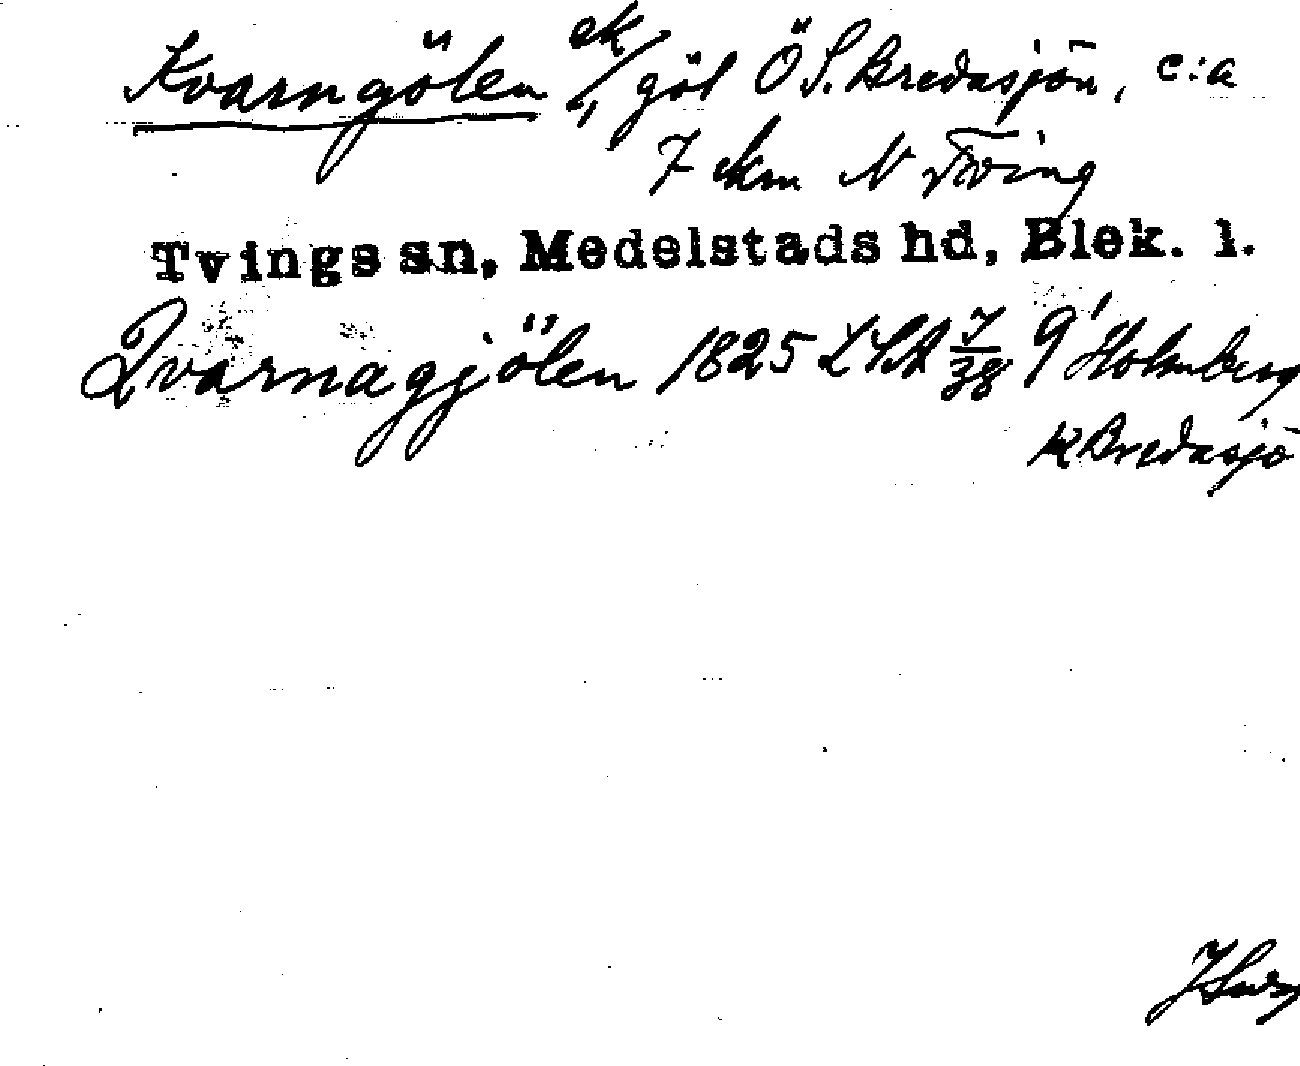 Kvarngölen ek/, göl Ö S. Bredasjön, c:a
7 km N Tving
Tvings sn, Medelstads hd, Blek. l.
Qvarnagjölen 1825 LSA 7/38 9' Holmberg
K Bredasjö